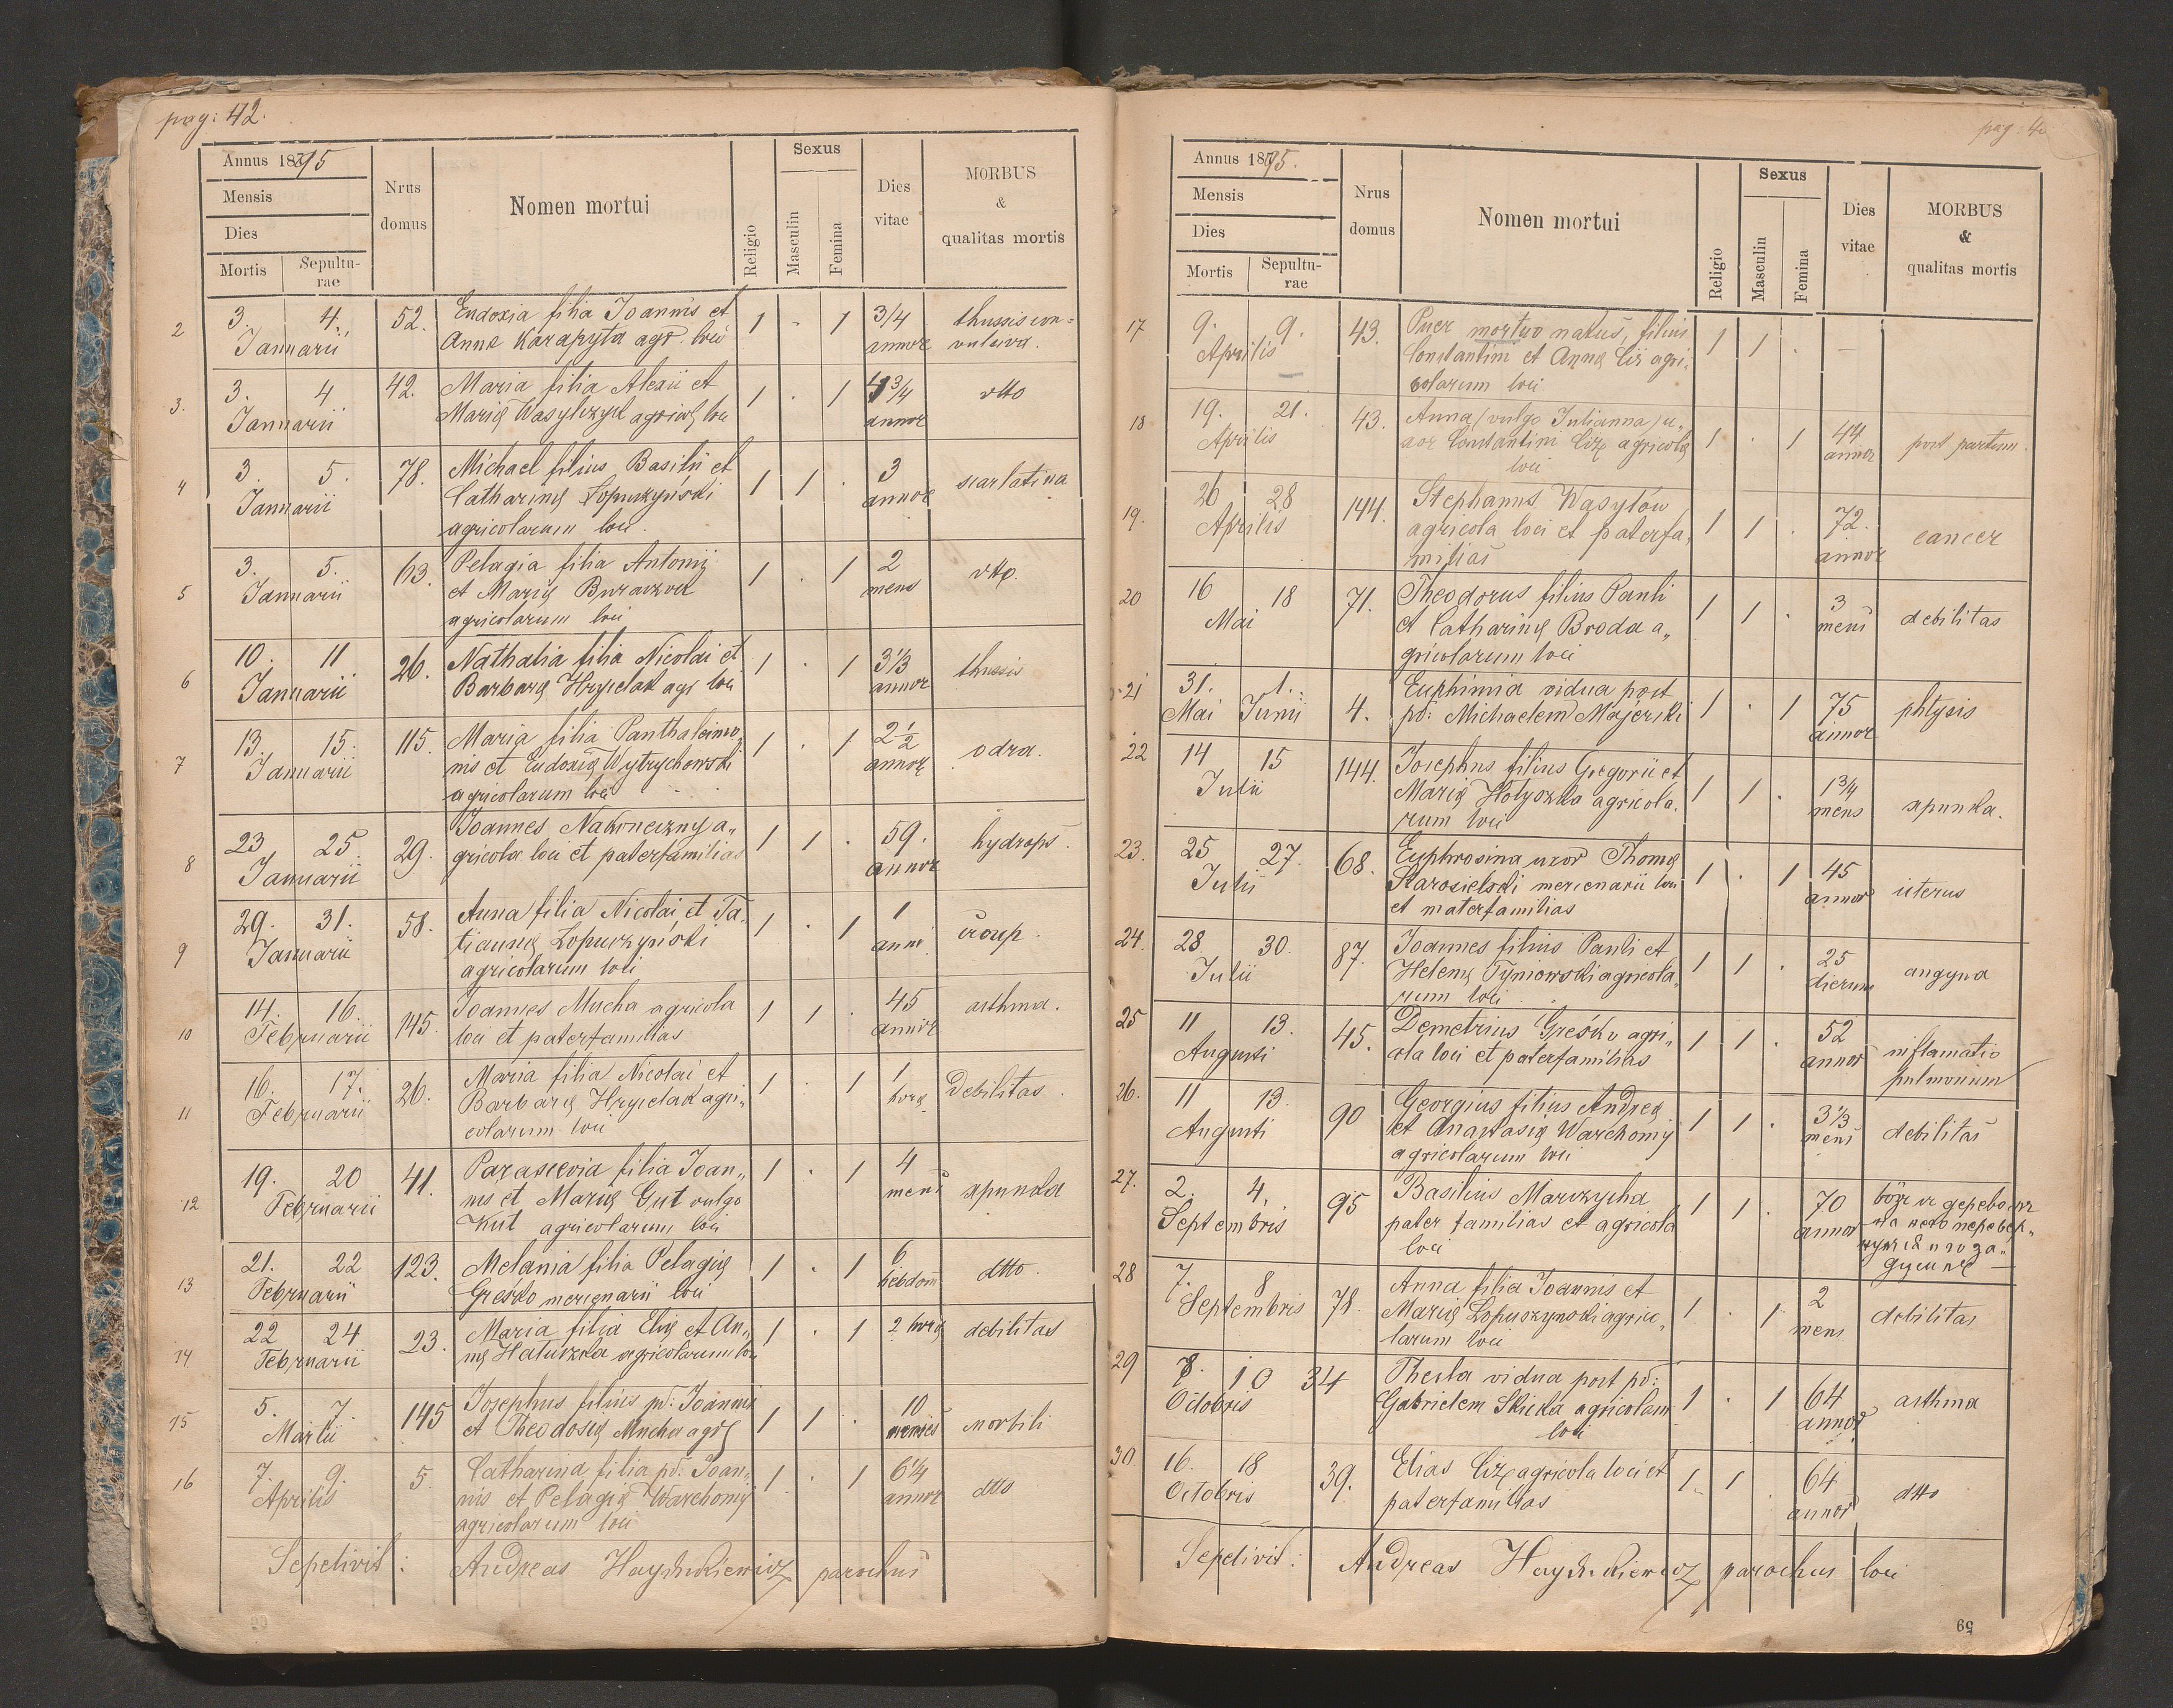 pag: 42.
Annus 1895
Mensis
Dies
Mortis
Sepultu-
rae
Nrus
domus
Nomen mortui
Religio
Sexus
Masculin
Femina
Dies
vitae
MORBUS
&
qualitas mortis
2 3. 4. 52. Eudoxia filia Joannis et 1 . 1 3/4 thussis con-
Januarii Annæ Karapyta agr. loci annor vulsiva.
3. 3. 4 42. Maria filia Alexii et 1 . 1 4 3/4 dtto
Januarii Mariæ Wasylczyk agricol loci annor
4 3. 5. 78. Michael filius Basilii et 1 1 . 3 scarlatina
Januarii Catharinæ Łopuszyński annor
agricolarum loci.
5 3. 5. 63. Pelagia filia Antonij 1 . 1 2 dtto.
Januarii et Mariæ Buraczok mens
agricolarum loci
6 10. 11 26. Nathalia filia Nicolai et 1 . 1 3 1/3 thussis
Januarii Barbaræ Hryciak agr loci annor
7 13. 15. 115. Maria filia Panthaleimo- 1 . 1 2 1/2 odra.
Januarii nis et Eudoxiæ Wytrychowski annor
agricolarum loci
8 23 25. 29. Joannes Nakoneczny a„ 1 1 . 59. hydrops.
Januarii gricola loci et paterfamilias annor
9 29. 31. 58. Anna filia Nicolai et Ta- 1 . 1 1 croup.
Januarii tiannæ Łopuszyński anni
agricolarum loci
10 14. 16. 145. Joannes Mucha agricola 1 1 . 45 asthma.
Februarii loci et paterfamilias annor
11 16. 17. 26. Maria filia Nicolai et 1 . 1 1 Debilitas.
Februarii Barbaræ Hryciak agri„ hora
colarum loci
12 19. 20 41. Parascevia filia Joan„ 1 . 1 4 apunkla
Februarii nis et Mariæ Gut vulgo mens
Kut agricolarum loci
13 21. 22 123. Melania filia Pelagiæ 1 . 1 6 dtto.
Februarii Greśko mercenarii loci hebdom
14 22 24 23. Maria filia Eliæ et An„ 1 . 1 2 horæ debilitas
Februarii næ Hatuszka agricolarum loci
15 5. 7. 145 Josephus filius pd: Joannis 1 1 . 10 morbili
Martii et Theodosiæ Mucha agr menses
16 7. 9. 5. Catharina filia pd: Joan„ 1 . 1 6 1/4 dtto
Aprilis nis et Pelagiæ Warchomij annor
agricolarum loci
Sepelivit: Andreas parochus
pag: 4
Annus 1895.
Mensis
Dies
Mortis
Sepultu-
rae
Nrus
domus
Nomen mortui
Religio
Sexus
Masculin
Femina
Dies
vitae
MORBUS
&
qualitas mortis
17 9. 9. 43. Puer mortuo natus, filius 1 1 . —
Aprilis Constantini et Annæ Ciż agri-
colarum loci
18 19. 21. 43. Anna (vulgo Julianna) u„ 1 . 1 44 post partum.
Aprilis xor Constantini Ciż agricolæ annor
loci
19. 26 28 144. Stephanus Wasylów 1 1 . 72. cancer
Aprilis agricola loci et paterfa„ annor
milias
20 16 18 71. Theodorus filius Pauli 1 1 . 3 debilitas
Mai et Catharinæ Broda a„ mens
gricolarum loci
21 31. 1. 4. Euphimia vidua post 1 . 1 75 phtysis
Mai Junii pd: Michaelem Majerski annor
22 14 15 144. Josephus filius Gregorii et 1 1 . 1 3/4 apunkla.
Julii Mariæ Hołyszka agricola- mens
rum loci
23. 25 27. 68. Euphrosina uxor Thomæ 1 . 1 45 uterus
Julii Starosielski mercenarii loci annor
et materfamilias
24. 28 30. 87. Joannes filius Pauli et 1 1 . 25 angyna
Julii Helenæ Tymowski agricola„ dierum
rum loci
25 11 13. 45. Demetrius Greśko agri„ 1 1 . 52 inflamatio
Augusti cola loci et paterfamilias annor pulmonum
26. 11 13. 90 Georgius filius Andreæ 1 1 . 3 1/3 debilitas
Augusti et Anastasiæ Warchomij mens
agricolarum loci
27. 2. 4. 95 Basilius Marczycha 1 1 . 70
Septembris pater familias et agricola annor
loci
28 7. 8 78. Anna filia Joannis et 1 . 1 2 debilitas
Septembris Mariæ Łopuszynski agrico„ mens
larum loci
29 8. 10 34 Thecla vidua post pd: 1 . 1 64 asthma
Octobris Gabrielem Skicka agricolam annor
loci
30 16. 18 39. Elias Ciż agricola loci et 1 1 . 64 dtto
Octobris paterfamilias annor
Sepelivit: Andreas parochus loci
69